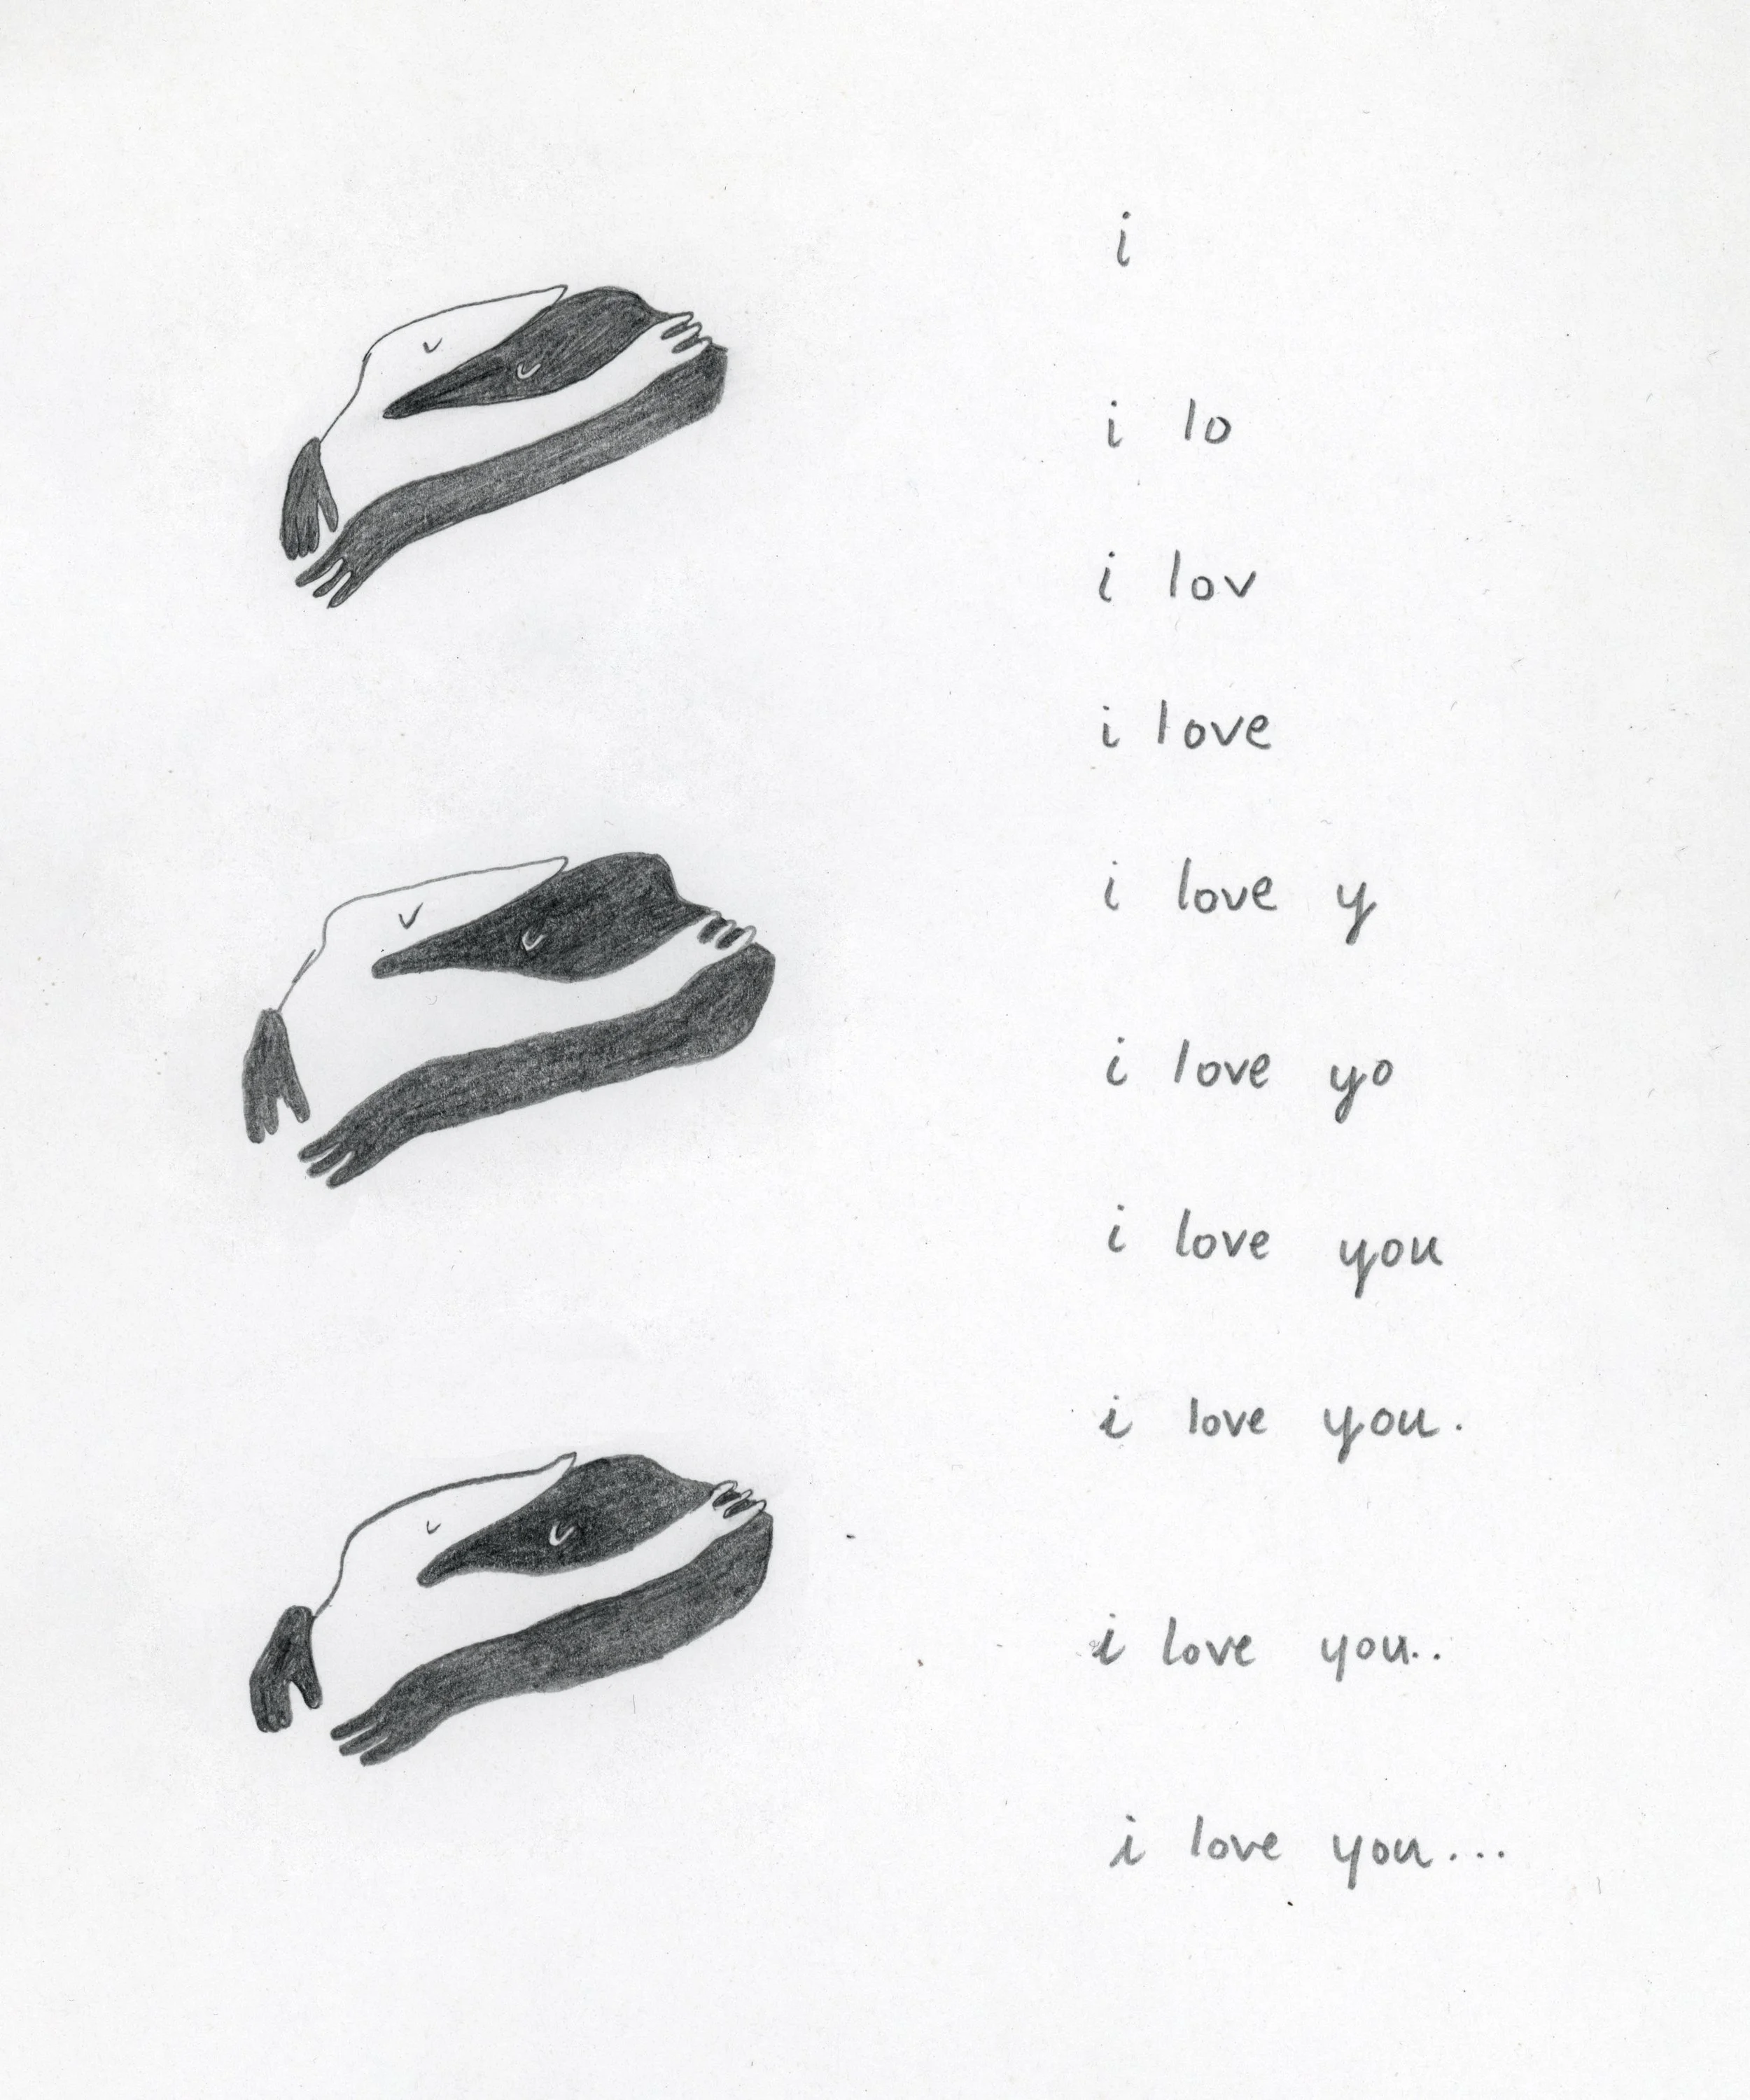 i
i lo
i lov
i love
i love y
i love yo
i love you
i love you.
i love you..
i love you...